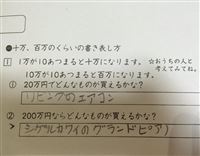 ●十万、百万のくらいの書き表し方
1 1万が10あつまると十万になります。 ☆おうちの人と考えてみてね。
10万が10あつまると百万になります。
① 20万円でどんなものが買えるかな?
リビングのエアコン
② 200万円ならどんなものが買えるかな?
シゲルカワイのグランドピアノ